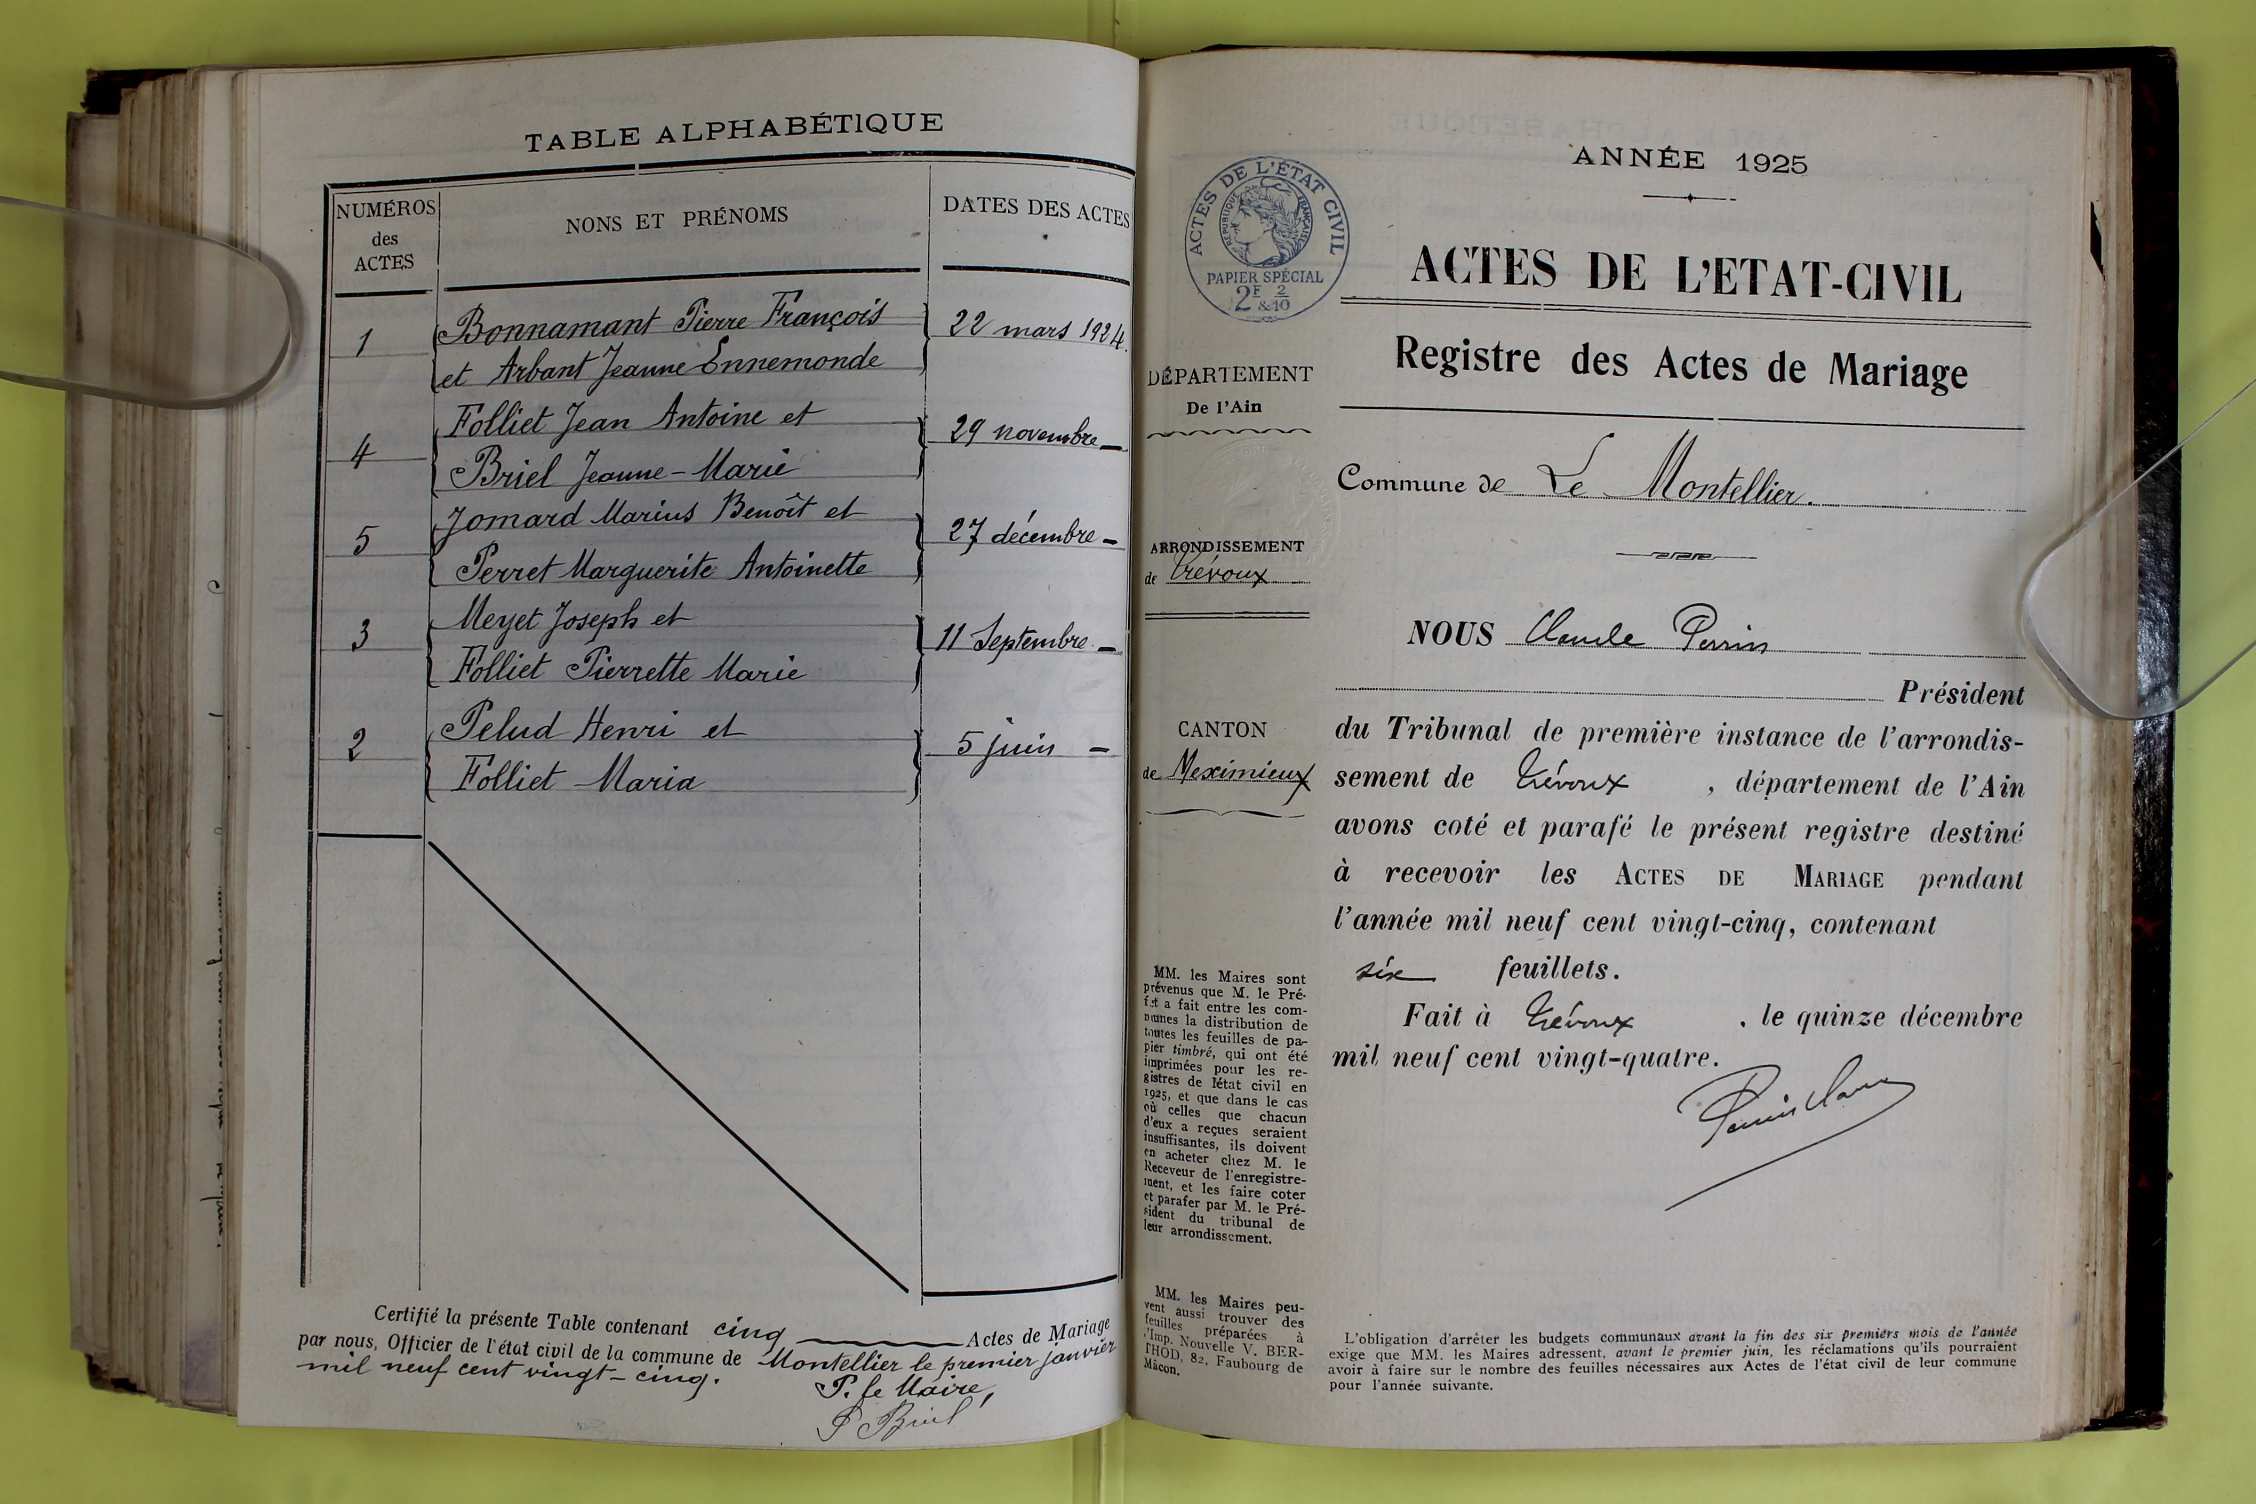 TABLE ALPHABÉTIQUE
NUMÉROS
des
ACTES
NONS ET PRÉNOMS
DATES DES ACTES
1
Bonnamant Pierre François
et Arbant Jeanne Ennemonde
22 mars 1924.
4
Folliet Jean Antoine et
Briel Jeanne-Marie
29 novembre —
5
Jomard Marius Benoît et
Perret Marguerite Antoinette
27 décembre —
3
Meyet Joseph et
Folliet Pierrette Marie
11 Septembre —
2
Pelud Henri et
Folliet Maria
5 juin —
Certifié la présente Table contenant cinq Actes de Mariage
par nous, Officier de l'état civil de la commune de Montellier le premier janvier
mil neuf cent vingt-cinq.
P. le Maire,
ANNÉE 1925
ACTES DE L'ÉTAT CIVIL
RÉPUBLIQUE FRANÇAISE
PAPIER SPÉCIAL
2F & 2/10
ACTES DE L'ETAT-CIVIL
Registre des Actes de Mariage
DÉPARTEMENT
De l'Ain
Commune de Le Montellier.
ARRONDISSEMENT
de Trévoux
CANTON
de Meximieux
NOUS Claude Perrin
Président
du Tribunal de première instance de l'arrondis-
sement de Trévoux, département de l'Ain
avons coté et parafé le présent registre destiné
à recevoir les ACTES DE MARIAGE pendant
l'année mil neuf cent vingt-cinq, contenant
six feuillets.
Fait à Trévoux, le quinze décembre
mil neuf cent vingt-quatre.
MM. les Maires sont
prévenus que M. le Pré-
fet a fait entre les com-
munes la distribution de
toutes les feuilles de pa-
pier timbré, qui ont été
imprimées pour les re-
gistres de l'état civil en
1925, et que dans le cas
où celles que chacun
d'eux a reçues seraient
insuffisantes, ils doivent
en acheter chez M. le
Receveur de l'enregistre-
ment, et les faire coter
et parafer par M. le Pré-
sident du tribunal de
leur arrondissement.
MM. les Maires peu-
vent aussi trouver des
feuilles préparées à
l'Imp. Nouvelle V. BER-
THOD, 82, Faubourg de
Mâcon.
L'obligation d'arrêter les budgets communaux avant la fin des six premiers mois de l'année
exige que MM. les Maires adressent, avant le premier juin, les réclamations qu'ils pourraient
avoir à faire sur le nombre des feuilles nécessaires aux Actes de l'état civil de leur commune
pour l'année suivante.